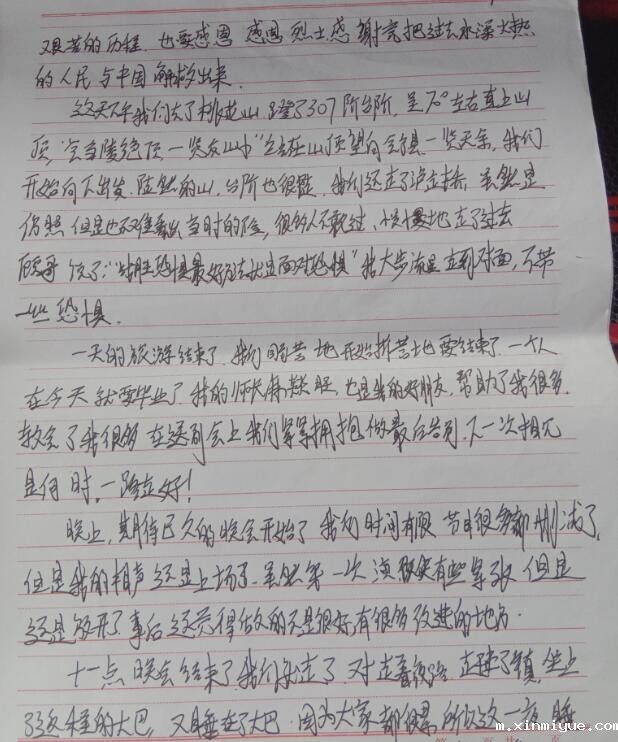 艰苦的历程.也要感恩 感恩烈士感谢党把过去水深火热
的人民与中国解放出来.
这天下午我们去了桃花山.蹬了307阶台阶,呈70°左右直上山
顶,"会当凌绝顶一览众山小"站在山顶望向会县一览无余,我们
开始向下出发.陡然的山,台阶也很陡.我们还走了 虽然是
仿照 但是也不难看出当时的险,很多人不敢过、慢慢地走了过去
说了:"战胜恐惧最好方法就是面对恐惧"我大步流星 走到对面,不带
一些恐惧.
一天的旅游结束了.我们 地开始 地要结束了.一个人
在今天就要毕业了 我的师 也是我的好朋友,帮助了我很多.
教会了我很多 在送别会上我们紧紧拥抱做最后告别.下一次相见
是何时.一路走好!
晚上,期待已久的晚会开始了 我们时间有限 节目很多都删减了,
但是我的相声还是上场了.虽然第一次演 有些紧张 但是
还是放开了 事后还觉得做的不是很好有很多改进的地方.
十一点 晚会结束了 我们 走了 走 夜路 走 了镇 坐上
返程的大巴.又睡在了大巴.因为大家都很累 所以这一夜 睡
m.xinmiyue.com